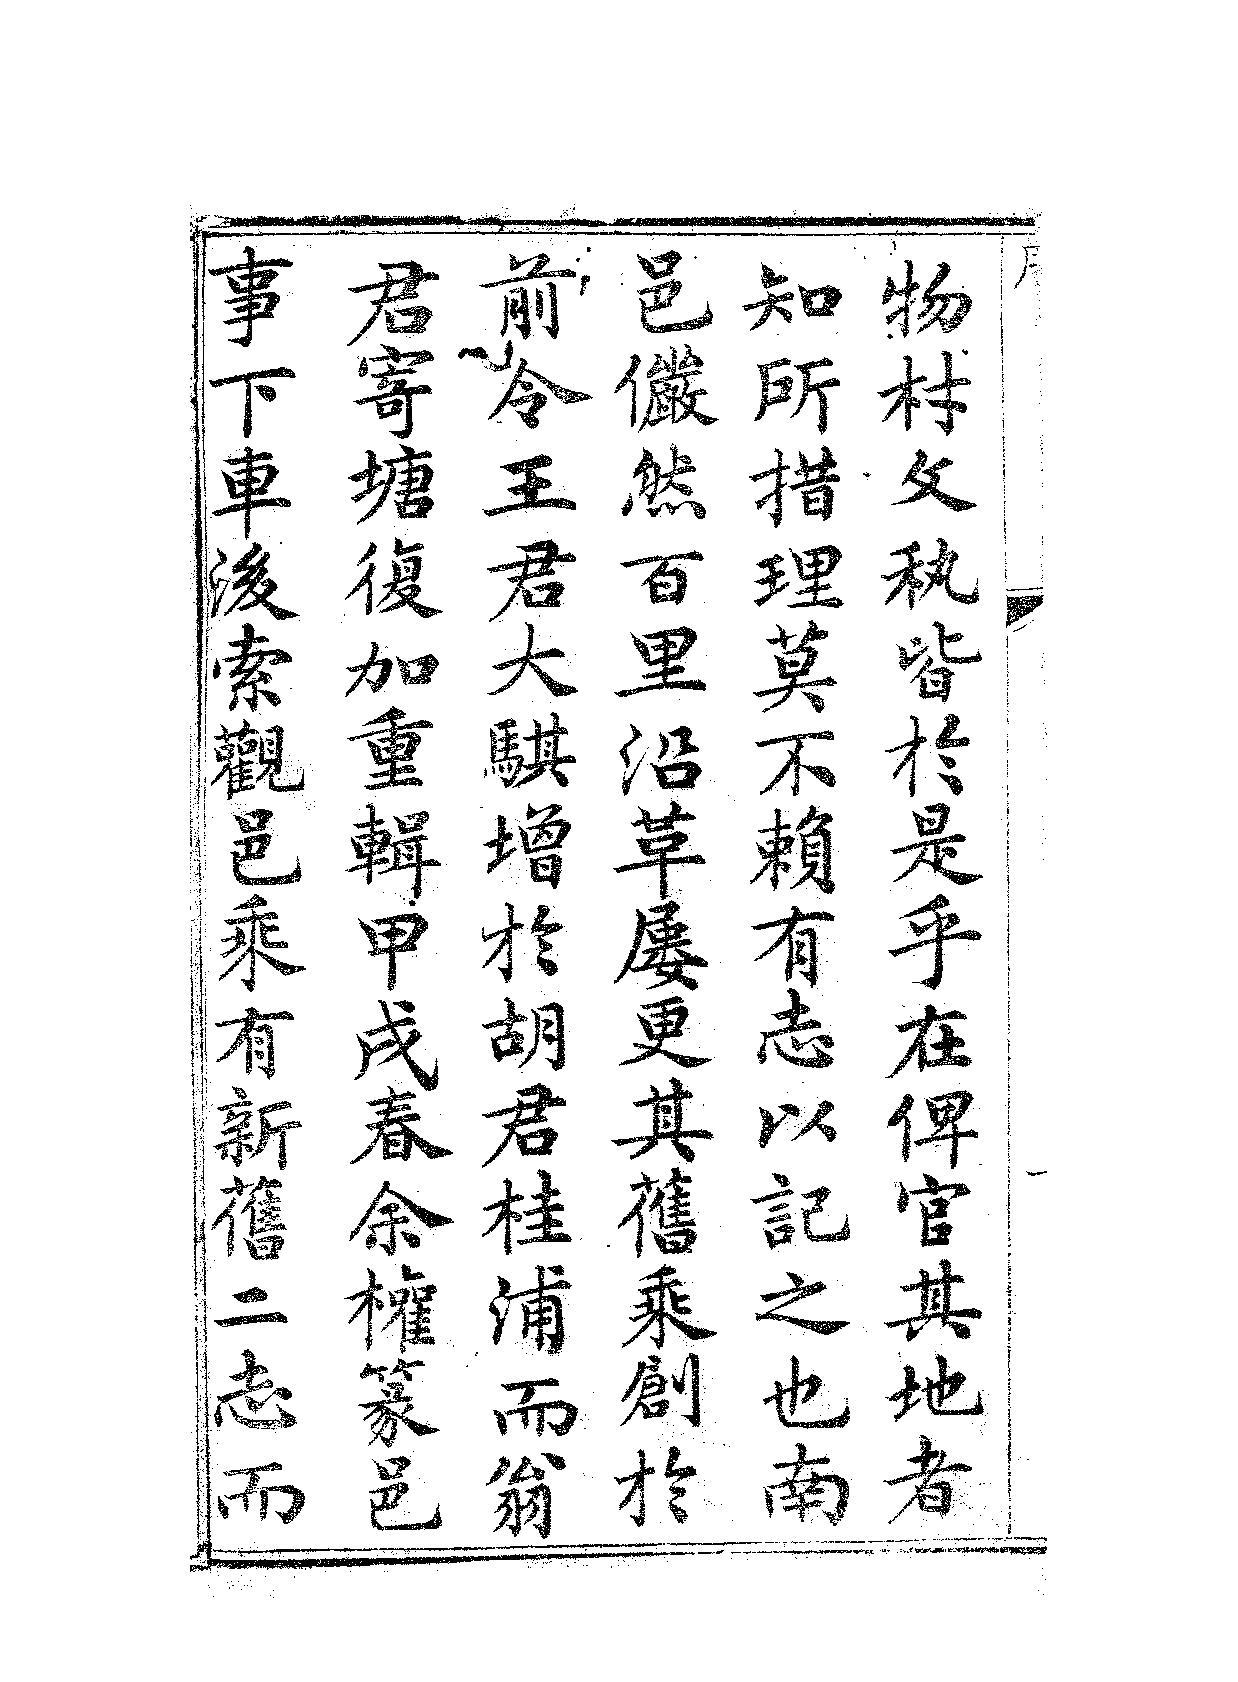 物材文秇皆於是乎在俾官其地者
知所措理莫不賴有志以記之也南
邑儼然百里沿革屢更其舊乘創於
前令王君大騏增於胡君桂浦而翁
君寄塘復加重輯甲戌春余權篆邑
事下車後索觀邑乘有新舊二志而